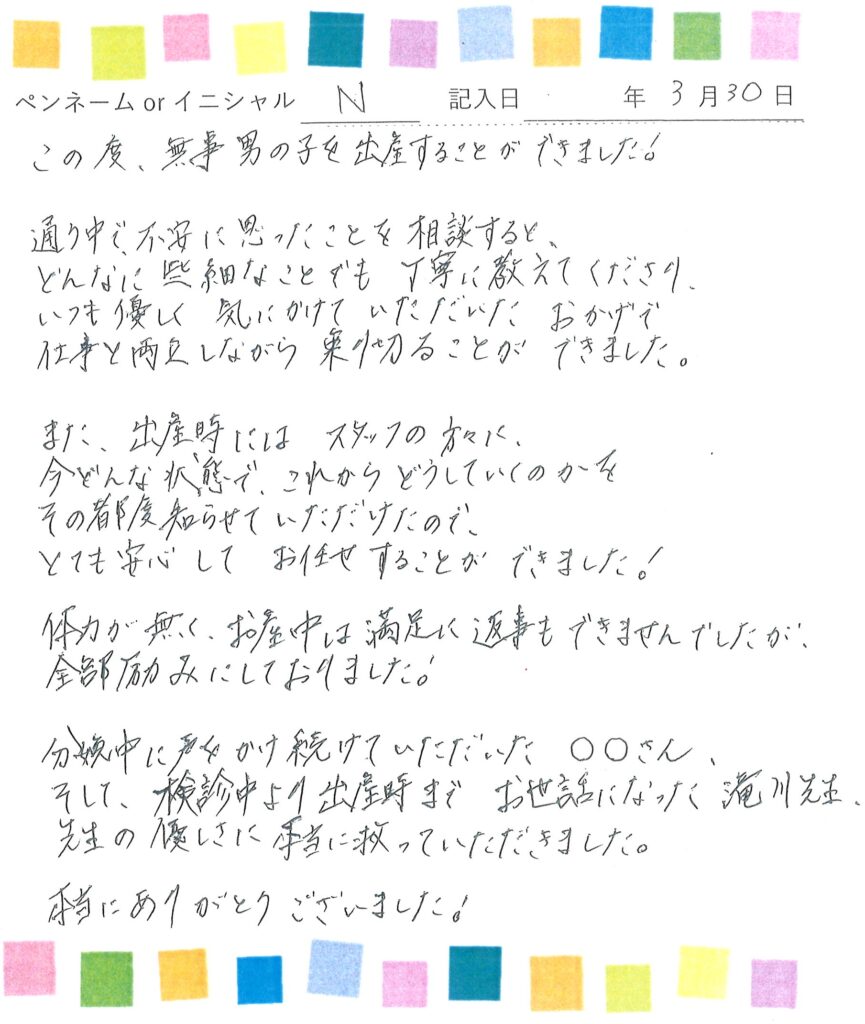 ペンネーム or イニシャル N 記入日 年 3月30日
この度、無事男の子を出産することができました!
通り中で、不安に思ったことを相談すると、
どんなに些細なことでも丁寧に教えてくださり、
いつも優しく気にかけていただいたおかげで
仕事と両立しながら乗り切ることができました。
また、出産時にはスタッフの方々に、
今どんな状態で、これからどうしていくのかを
その都度知らせていただけたので、
とても安心してお任せすることができました!
体力が無く、お産中は満足に返事もできませんでしたが、
全部励みにしておりました!
分娩中に声をかけ続けていただいた ○○さん、
そして、検診中より出産時までお世話になった滝川先生、
先生の優しさに本当に救っていただきました。
本当にありがとうございました!